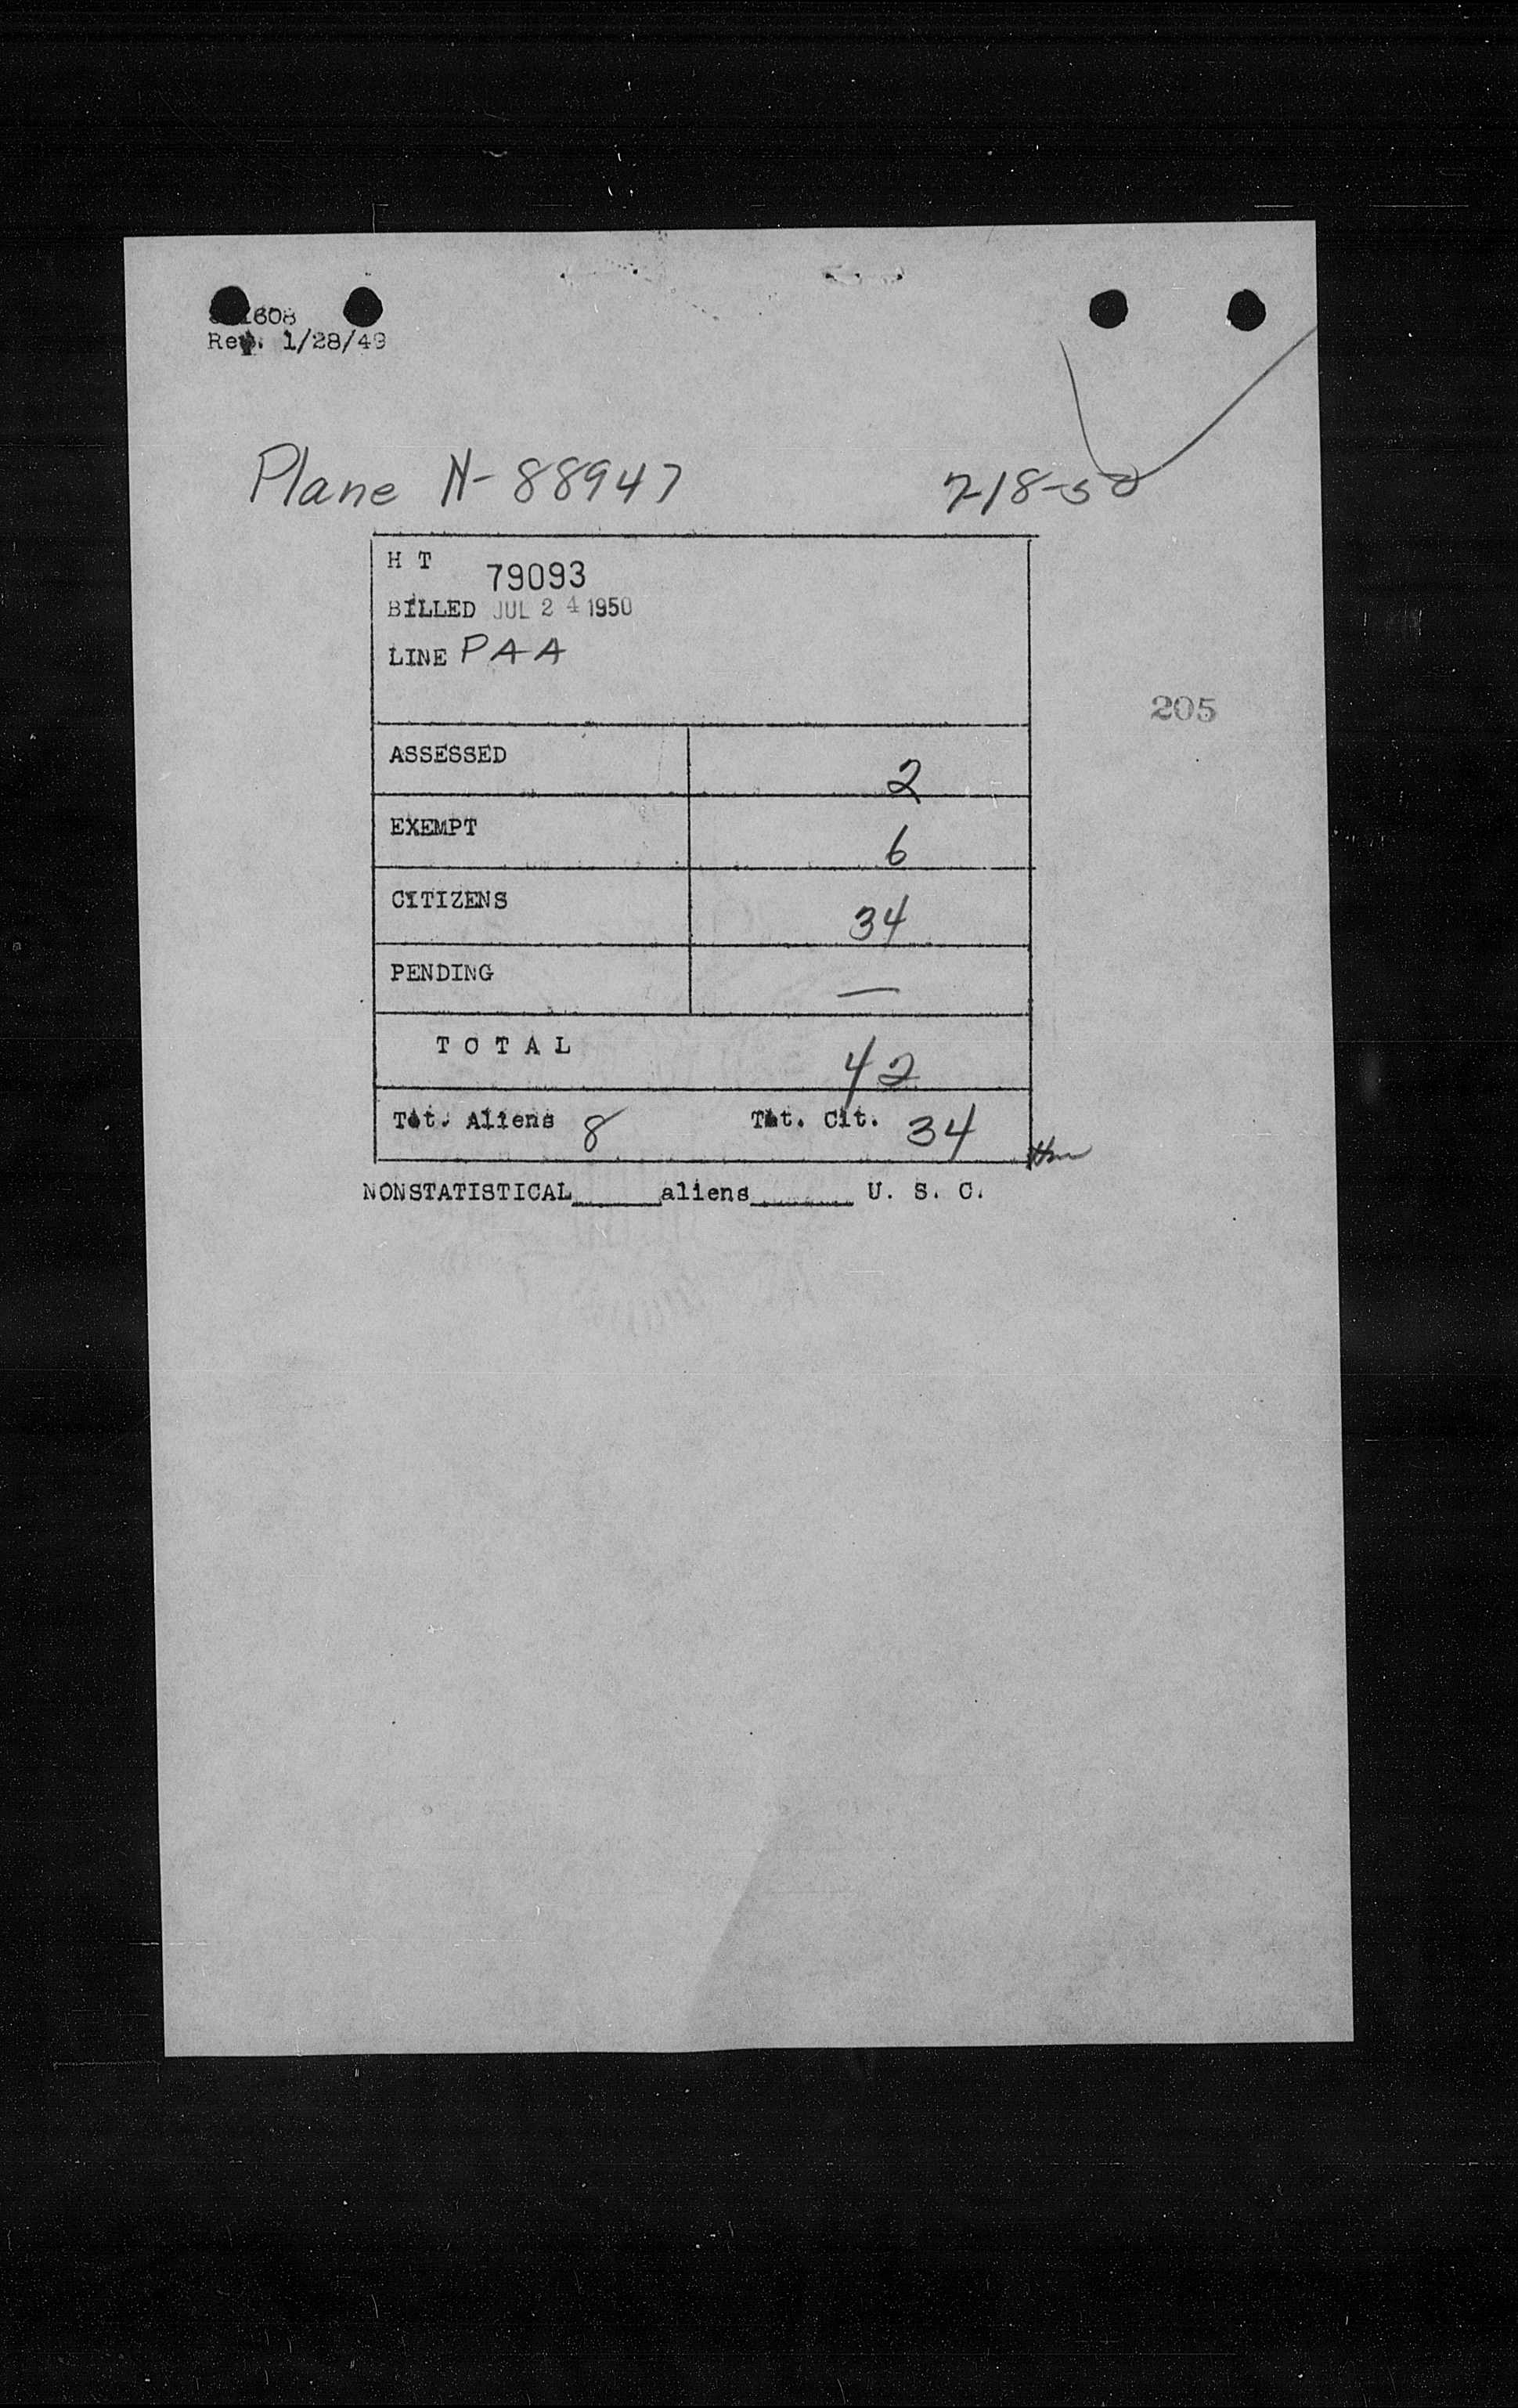 1608
Rev. 1/28/49
Plane N-88947 7-18-50
H T 79093
BILLED JUL 24 1950
LINE PAA
205
ASSESSED 2
EXEMPT 6
CITIZENS 34
PENDING —
T O T A L 42
Tot. Aliens 8 Tot. Cit. 34
NONSTATISTICAL______aliens_______ U. S. C.